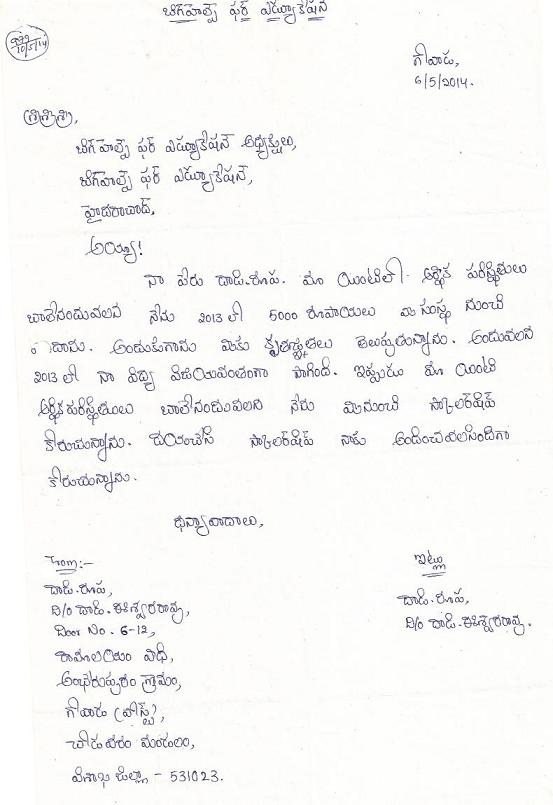 బిగ్‌హెల్ప్ ఫర్ ఎడ్యూకేషన్
10/5/14
గోవాడ,
6/5/2014.
శ్రీశ్రీశ్రీ,
బిగ్‌హెల్ప్ ఫర్ ఎడ్యూకేషన్ అధ్యక్షులు,
బిగ్‌హెల్ప్ ఫర్ ఎడ్యూకేషన్,
హైదరాబాద్,
అయ్యా!
నా పేరు దాడి.రూప. మా యింటిలో ఆర్థిక పరిస్థితులు
బాలేనందువలన నేను 2013 లో 5000 రూపాయలు మీ సంస్థ నుంచి
పొందాను. అందుకుగాను మీకు కృతజ్ఞతలు తెలుపుతున్నాను. అందువలన
2013 లో నా విద్య విజయవంతంగా సాగింది. ఇప్పుడు మా యింటి
ఆర్థికపరిస్థితులు బాలేనందువలన నేను మీనుంచి స్కాలర్‌షిప్
కోరుచున్నాను. దయచేసి స్కాలర్‌షిప్ నాకు అందించవలసిందిగా
కోరుచున్నాను.
ధన్యవాదాలు,
From:-
దాడి.రూప,
D/o దాడి.ఈశ్వరరావు,
Door No. 6-12,
రామాలయం వీధి,
అంభేరుపురం గ్రామం,
గోవాడ (పోస్ట్),
చోడవరం మండలం,
విశాఖ జిల్లా - 531023.
ఇట్లు
దాడి.రూప,
D/o దాడి.ఈశ్వరరావు.